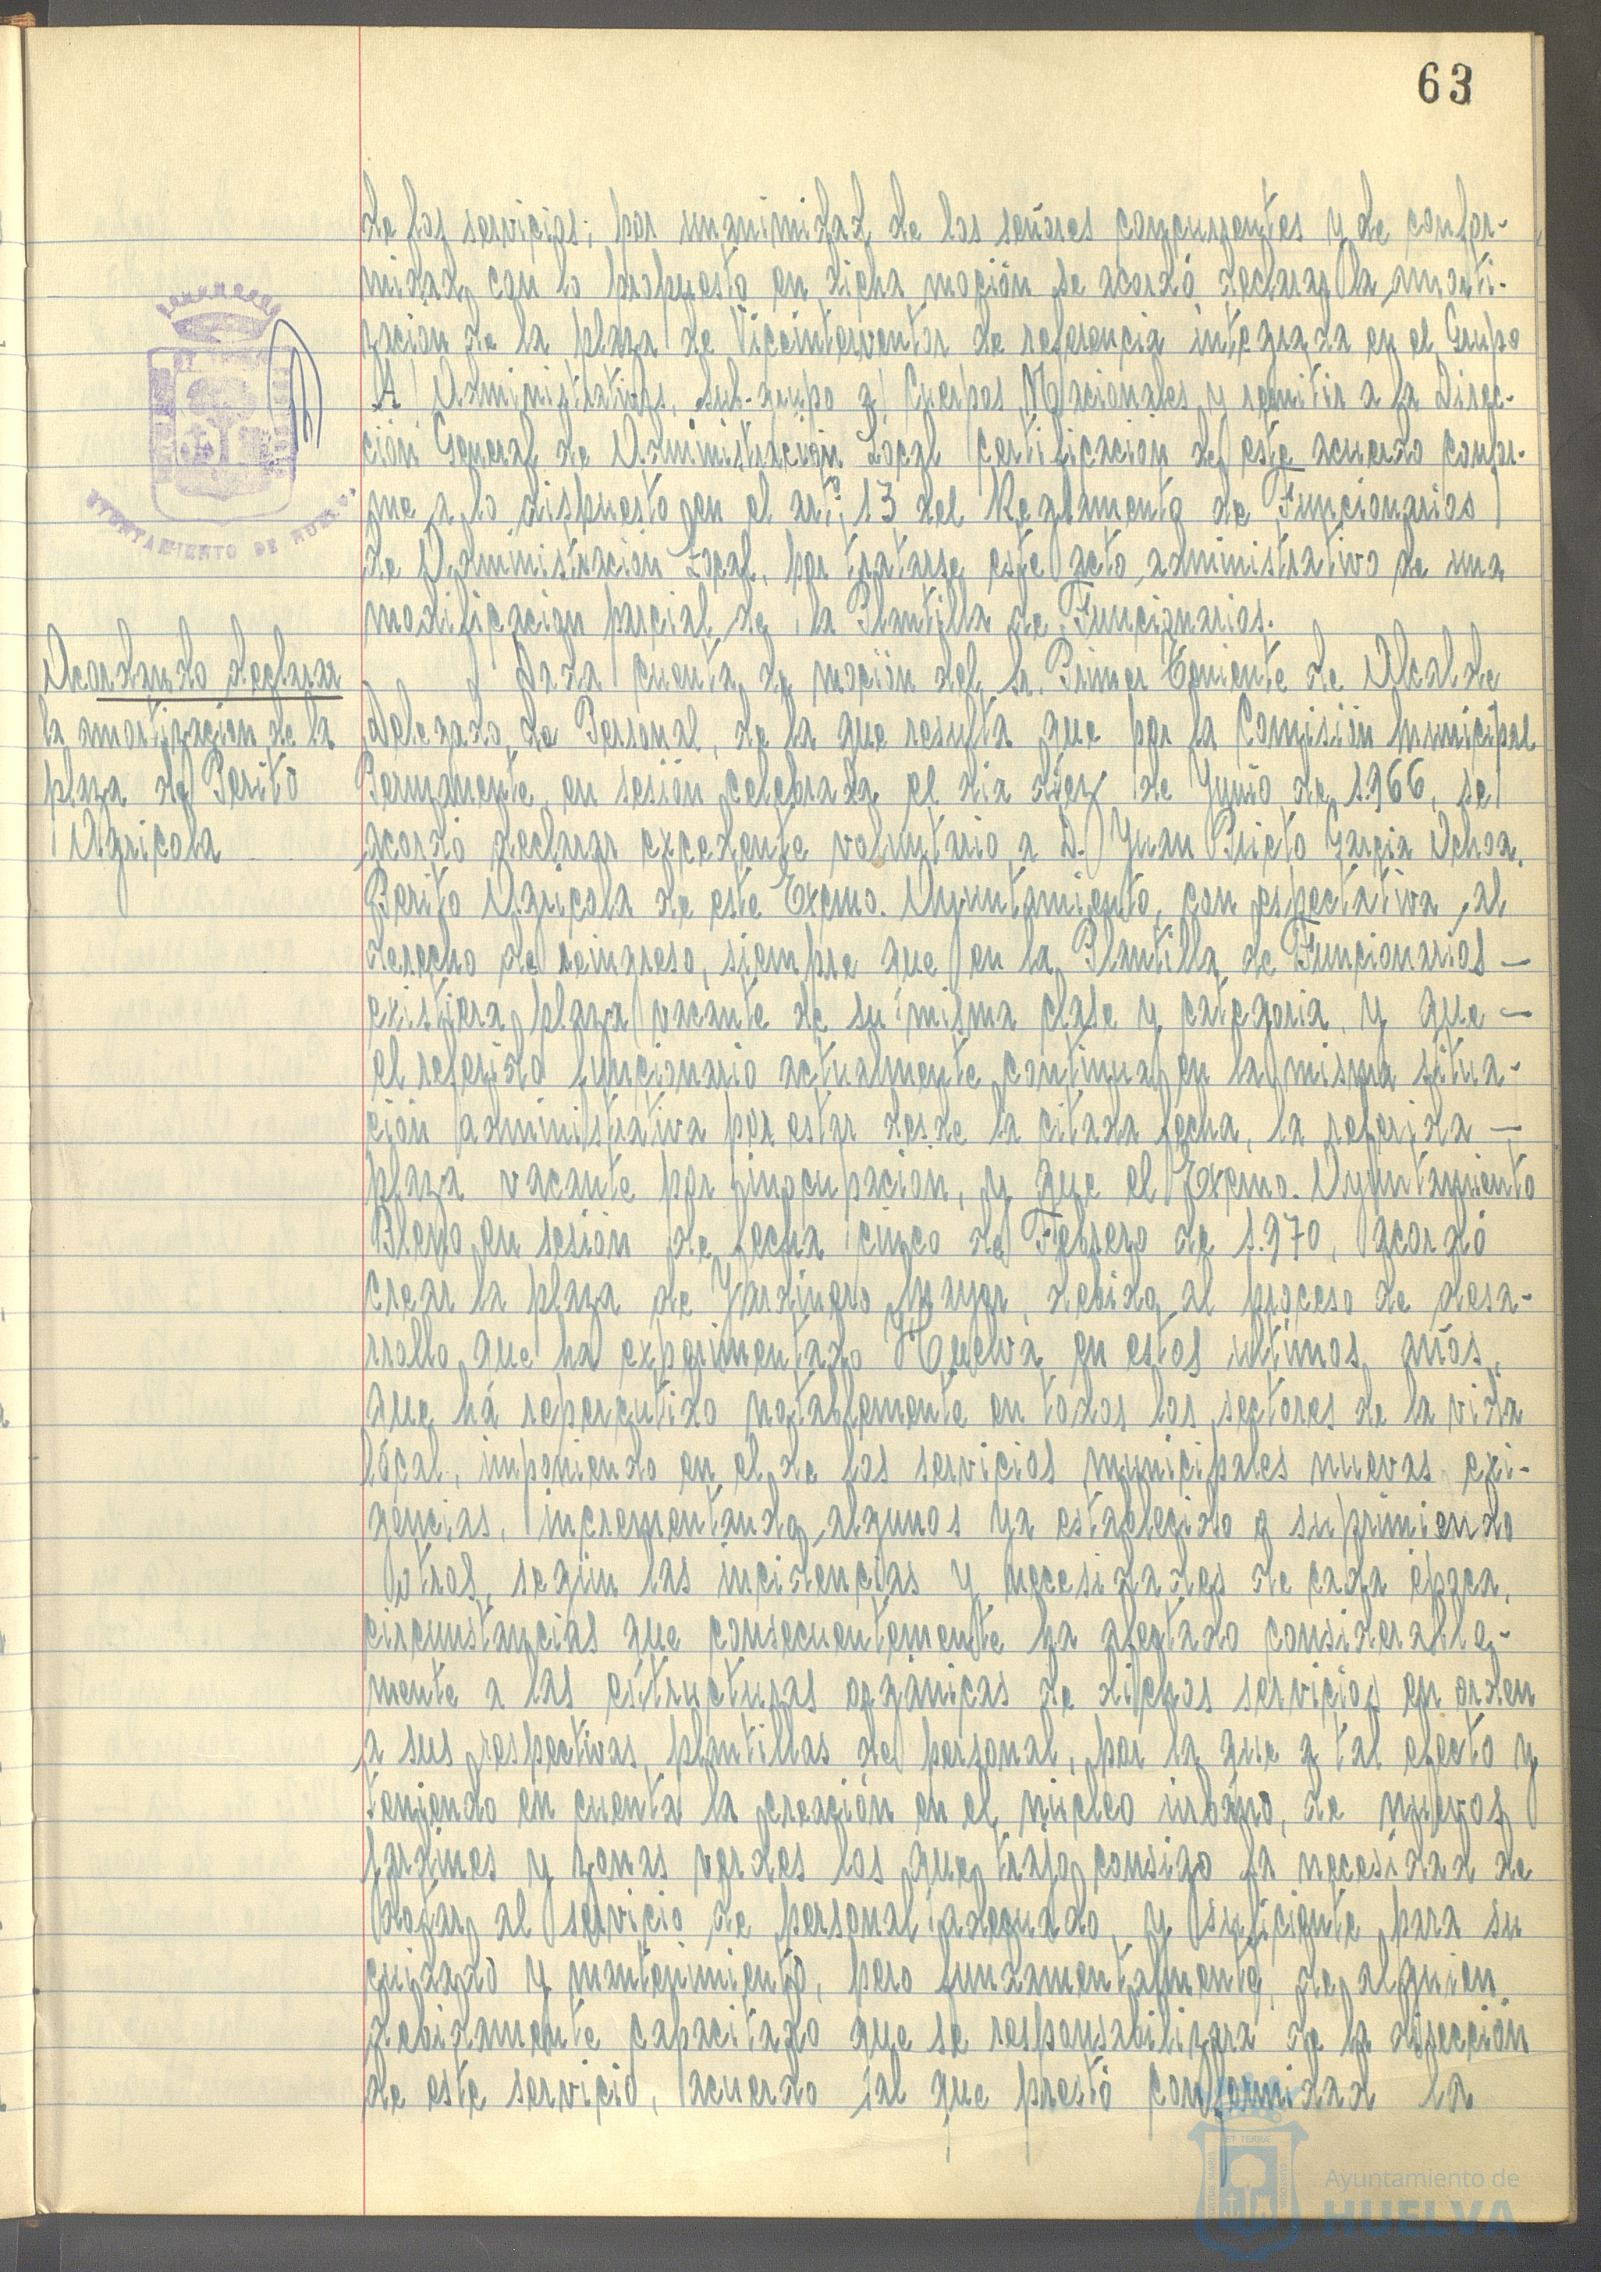 63
de los servicios; por unanimidad de los señores concurrentes y de confor-
midad, con lo propuesto en dicha moción se acordó declarar la amorti-
zación de la plaza de Viceinterventor de referencia integrada en el Grupo
A) Administrativos, Sub-grupo a) Cuerpos Nacionales y remitir a la Direc-
ción General de Administración Local certificación de este acuerdo confor-
me a lo dispuesto en el artº 13 del Reglamento de Funcionarios
de Administración Local, por tratarse este acto administrativo de una
modificación parcial de la Plantilla de Funcionarios.
AYUNTAMIENTO DE HUELVA
Acordando declarar
la amortización de la
plaza de Perito
Agricola
Dada cuenta de moción del Sr. Primer Teniente de Alcalde
Delegado de Personal, de la que resulta que por la Comisión Municipal
Permanente, en sesión celebrada el dia diez de Junio de 1.966, se
acordó declarar excedente voluntario a D. Juan Prieto Garcia Ochoa,
Perito Agricola de este Excmo. Ayuntamiento, con espectativa al
derecho de reingreso, siempre que en la Plantilla de Funcionarios —
existiera plaza vacante de su misma clase y categoria, y que —
el referido funcionario actualmente continua en la misma situa-
ción administrativa por estar desde la citada fecha, la referida —
plaza vacante por inocupación, y que el Excmo. Ayuntamiento
Pleno en sesión de fecha cinco de Febrero de 1.970, acordó
crear la plaza de Jardinero Mayor, debido al proceso de desa-
rrollo que ha experimentado Huelva en estos ultimos años,
que há repercutido notablemente en todos los sectores de la vida
local, imponiendo en el de los servicios municipales nuevas exi-
gencias, incrementando algunos ya establecido o suprimiendo
otros, según las incidencias y necesidades de cada época,
circunstancias que consecuentemente ha afectado considerable-
mente a las estructuras orgánicas de dichos servicios en orden
a sus respectivas plantillas de personal, por la que a tal efecto y
teniendo en cuenta la creación en el núcleo urbano, de nuevos
jardines y zonas verdes los que trajo consigo la necesidad de
dotar al servicio de personal adecuado y suficiente para su
cuidado y mantenimiento, pero fundamentalmente, de alguien
debidamente capacitado que se responsabilizara de la dirección
de este servicio, acuerdo al que prestó conformidad la
Ayuntamiento de
HUELVA